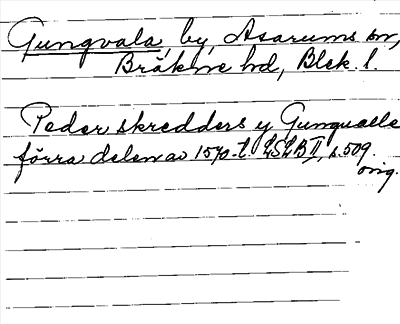 Gungvala, by, Asarums sn,
Bräkne hd, Blek. l.
Peder skredders y Gungualle
förra delen av 1570-t. LSLB II, s. 509.
orig.